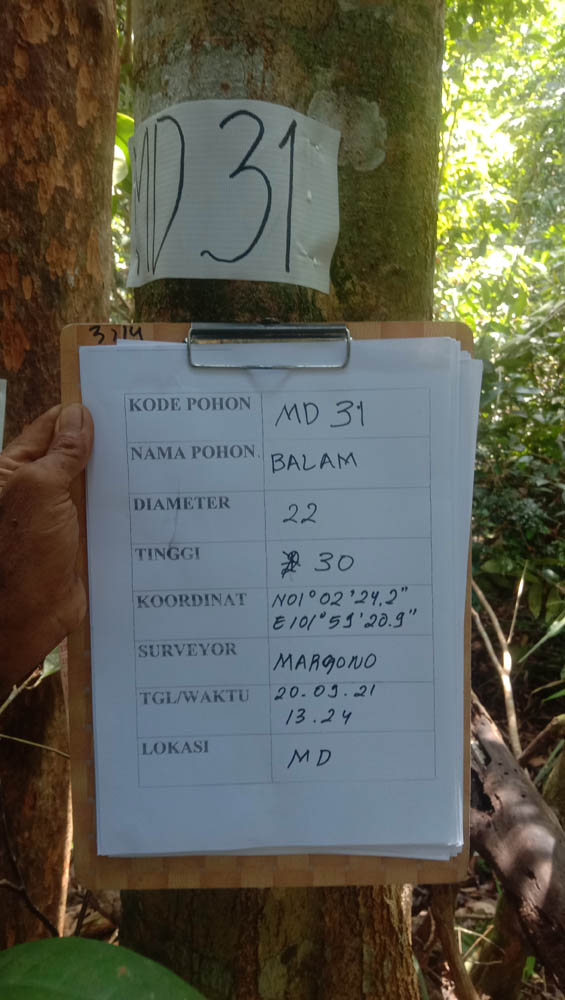 MD 31
3,14
KODE POHON MD 31
NAMA POHON. BALAM
DIAMETER 22
TINGGI 30
KOORDINAT N01°02'24.2"
E101°59'20.9"
SURVEYOR MARGONO
TGL/WAKTU 20.09.21
13.24
LOKASI MD